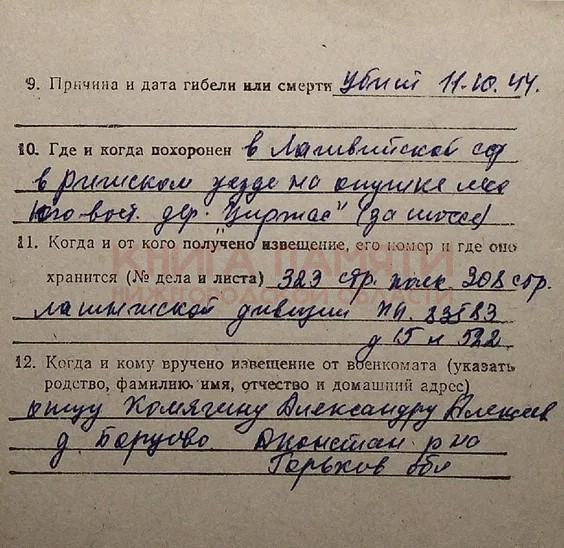 9. Причина и дата гибели или смерти убит 11.10.44.
10. Где и когда похоронен в Латвийской сср
в рижском уезде на опушке леса
юго-вост. дер. "Циржас" (за шоссе)
11. Когда и от кого получено извещение, его номер и где оно
КНИГА ПАМЯТИ
хранится (№ дела и листа) 323 стр. полк 308 стр.
ОБЛАСТИ
латышской дивизии №. 83583
д 15 л 522
12. Когда и кому вручено извещение от военкомата (указать
родство, фамилию, имя, отчество и домашний адрес)
отцу Хомягину Александру Алексеев
д. Борцово Дконстан р-на
Горьков обл